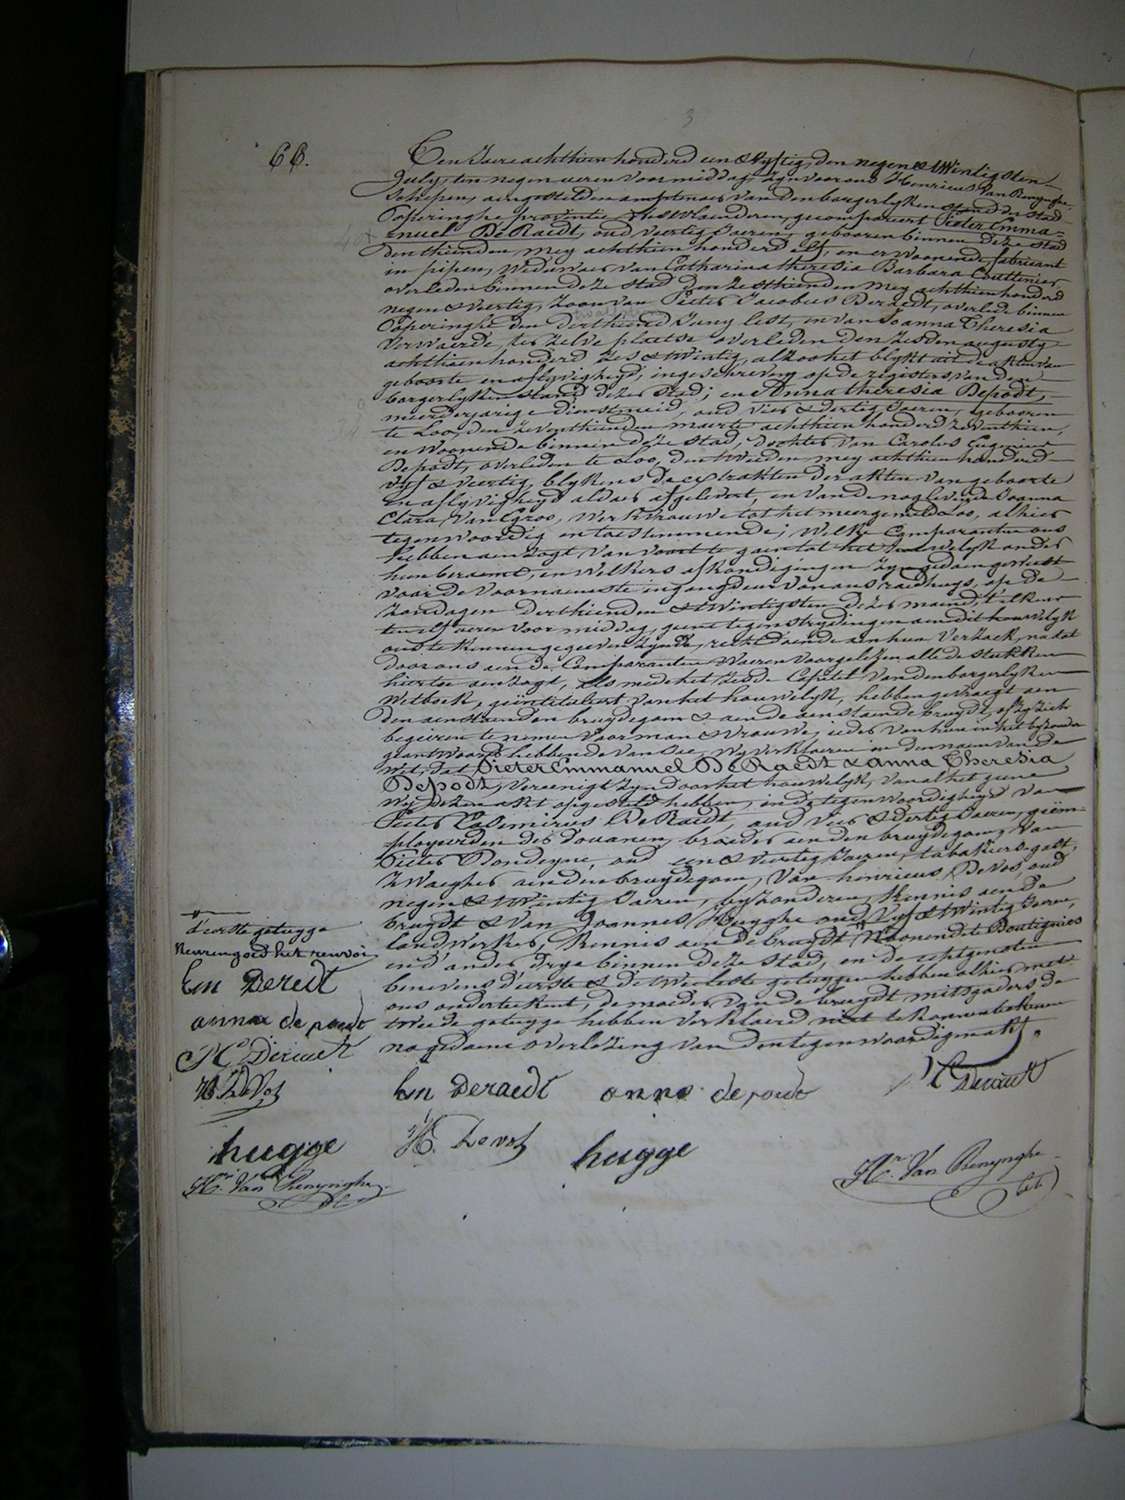 3
66.
Ten Jaere achthien honderd een & Vyftig, den negen & twintigsten
July, ten negen ueren voormiddag, zyn voor ons Henricus Van Renynghe,
Schepen, aengestelden amptenaer van den borgerlyken stand der Stad
Poperinghe provintie Westvlaenderen, gecompareert Pieter Emma-
nuel De Raedt, oud veertig Jaeren, gebooren binnen deze stad
den thienden Mey achthien honderd elf, en er woonende, fabricant
in pypen, Weduwaer van Catharina theresia Barbara Couttenier
overleden binnen deze Stad den zesthienden Mey achthien honderd
negen & veertig, Zoon van Pieter Jacobus Deraedt, overleden binnen
Poperinghe den derthienden Juny lest, en van Joanna Theresia
Verwaerde, ter zelve plaetse overleden den zesden augusty
achthien honderd zes & twintig, alzoo het blykt uit de akten van
geboorte en aflyvigheyd, ingeschreven op de registers van den
borgerlyken stand dezer Stad; en Anna theresia Depodt,
meerderjarige dienstmeid, oud vier & dertig Jaeren, gebooren
te Loo, den zeventhienden maerte achthien honderd zeventhien,
en woonende binnen deze Stad, dochter van Carolus Eugenius
Depodt, overleden te Loo, den tweeden mey achthien honderd
vyf & veertig, blykens de extrakten der akten van geboorte
en aflyvigheyd aldaer afgelevert, en van de nog levende Joanna
Clara Van Egroo, werkvrouwe tot het meergemeld Loo, alhier
tegenwoordig en toestemmende; Welke Comparanten ons
hebben aenzogt van voort te gaen tot het houwelyk onder
hun beraemt, en welkers afkondigingen zyn gedaen geweest
voor de voornaemste ingangdeur van ons raedhuys, op de
zondagen derthienden & twintigsten dezer maend, t'elkens
ten elf ueren voormiddag, geene tegenstrydingen aen dit houwelyk
ons te kennen gegeven zynde, recht doende aen hun verzoek, na dat
door ons aen de Comparanten waeren voorgelezen alle de stukken
hiertoe aenzogt, als mede het zesde Capitel van den borgerlyken
Wetboek, geïntituleert van het houwelyk, hebben gevraegt aen
den aenstaenden bruydegom & aen de aenstaende bruydt, of zy zich
begeeren te nemen voor man & vrouwe, ieder van hun in het byzonder
geantwoord hebbende van Jae, wy verklaeren in den naem van de
wet, dat Pieter Emmanuel De Raedt & anna Theresia
Depodt, vereenigt zyn door het houwelyk, van al het geene
wy dezen akt opgesteld hebben, in de tegenwoordigheyd van
Pieter Casemirius De Raedt, oud vier & dertig Jaeren, geëm-
ployeerden der douanen, broeder aen den bruydegom, van
Pieter Dondeyne, oud een & veertig Jaeren, tabakiersgast,
zwaegher aen den bruydegom, van henricus De Vos, oud
negen & twintig Jaeren, byzonderen, kennis aen de
bruydt & van Joannes Huyghe oud vyf & twintig Jaeren,
landwerker, kennis aen de bruydt, Woonende te
en d'ander drye binnen deze Stad, en de echtgenoten
benevens d'eerste & de twee leste getuygen hebben alhier met
ons onderteekent, de moeder van de bruydt mitsgaders de
tweede getuyge hebben verklaerd niet te konnen teekenen
na gedaene overlezing van den tegenwoordigen akt.
d'eerste getuygge
Em Deredt
anna de poudt
PC Deraedt
H. De Vos
hugge
Hri Van Renynghe
Em Deraedt
anna de poudt
PC Deraedt
H. De Vos
hugge
Hri Van Renynghe